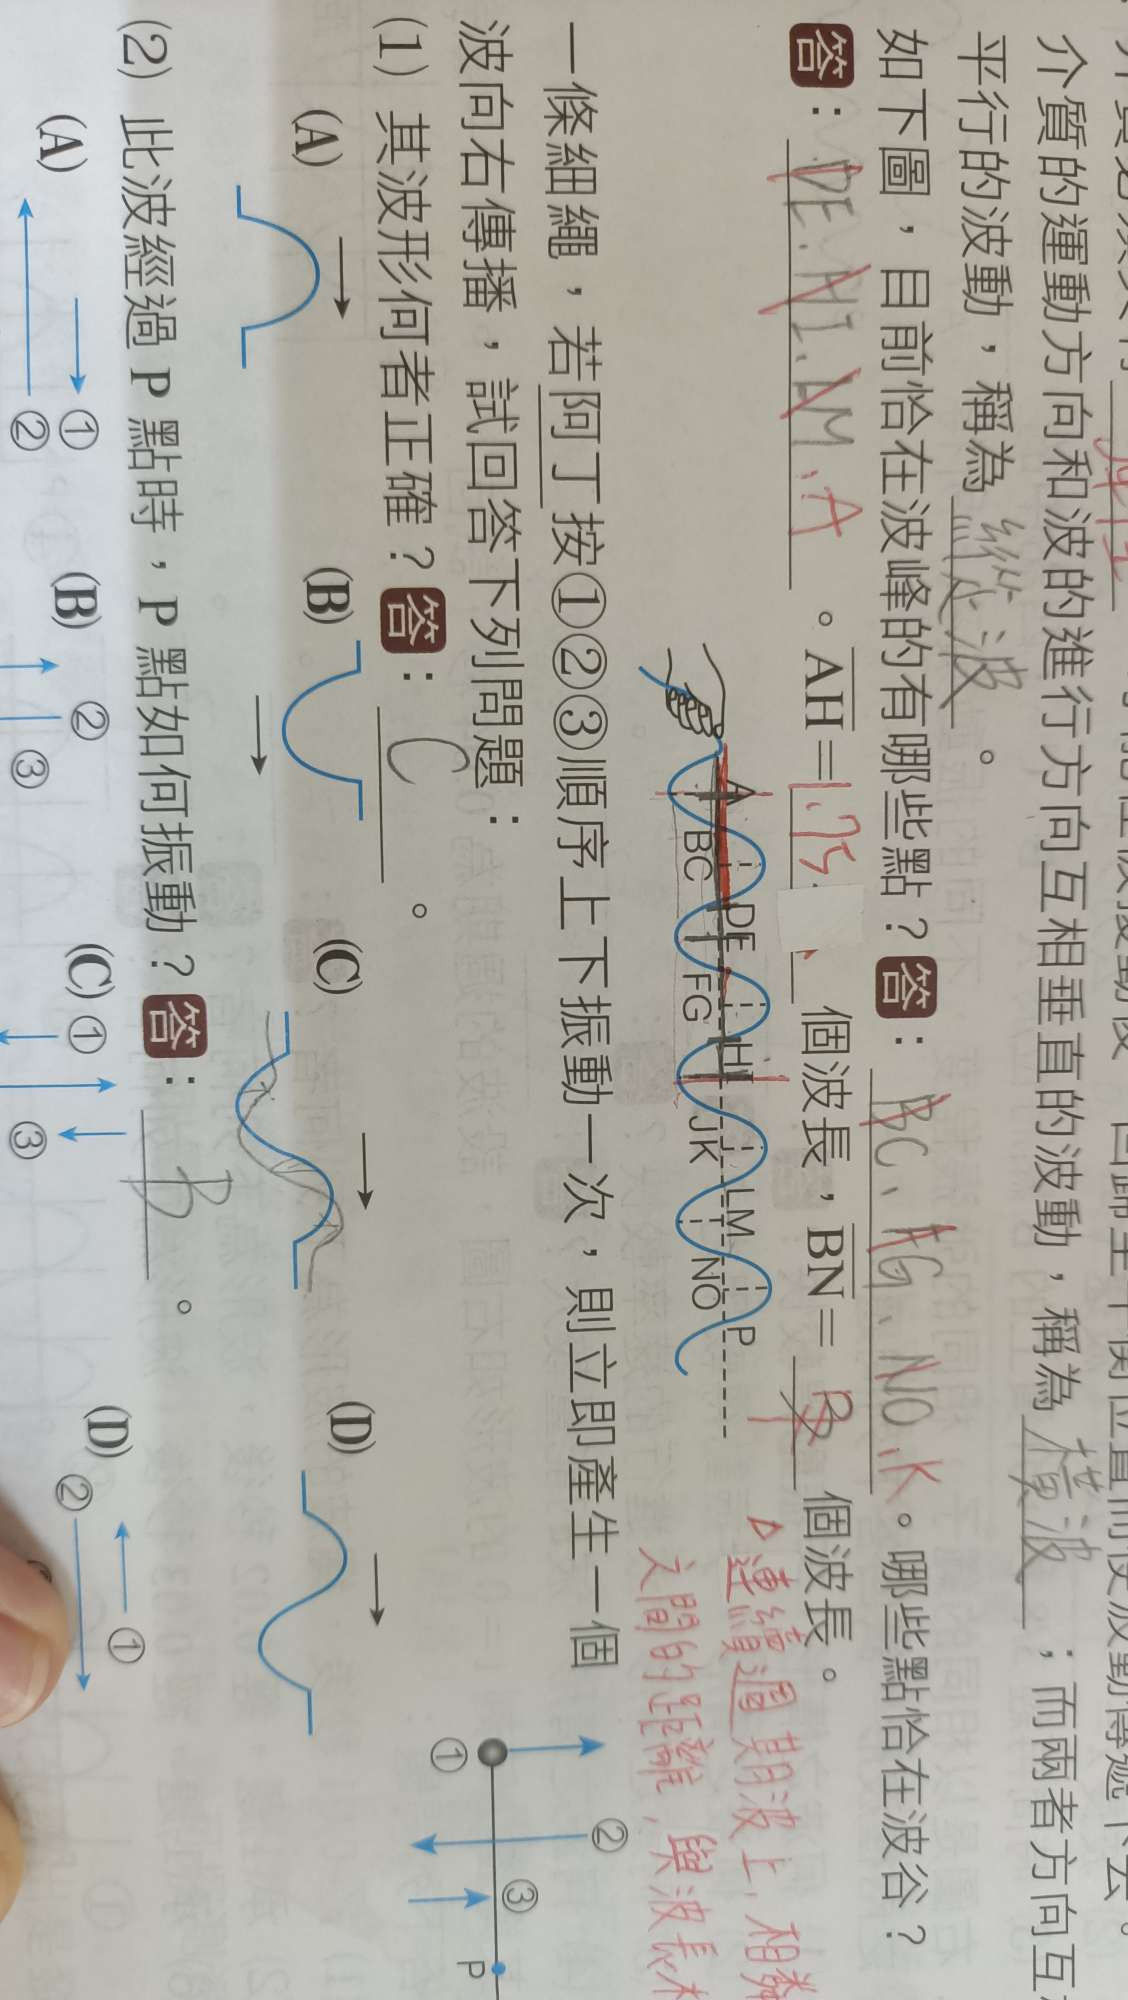 介質的運動方向和波的進行方向互相垂直的波動,稱為橫波;而兩者方向互
平行的波動,稱為縱波。
如下圖,目前恰在波峰的有哪些點?答:BC、FG、NO、K。哪些點恰在波谷?
答:DE、HI、LM、A。AH=1.75個波長,BN=3個波長。
A BC DE FG HI JK LM NO P
連續週期波上,相鄰
之間的距離,與波長
一條細繩,若阿丁按①②③順序上下振動一次,則立即產生一個
波向右傳播,試回答下列問題:
① ② ③ P
(1) 其波形何者正確?答:C。
(A) (B) (C) (D)
(2) 此波經過 P 點時,P 點如何振動?答:B。
(A) ① ② (B) ② ③ (C) ① ③ (D) ① ②